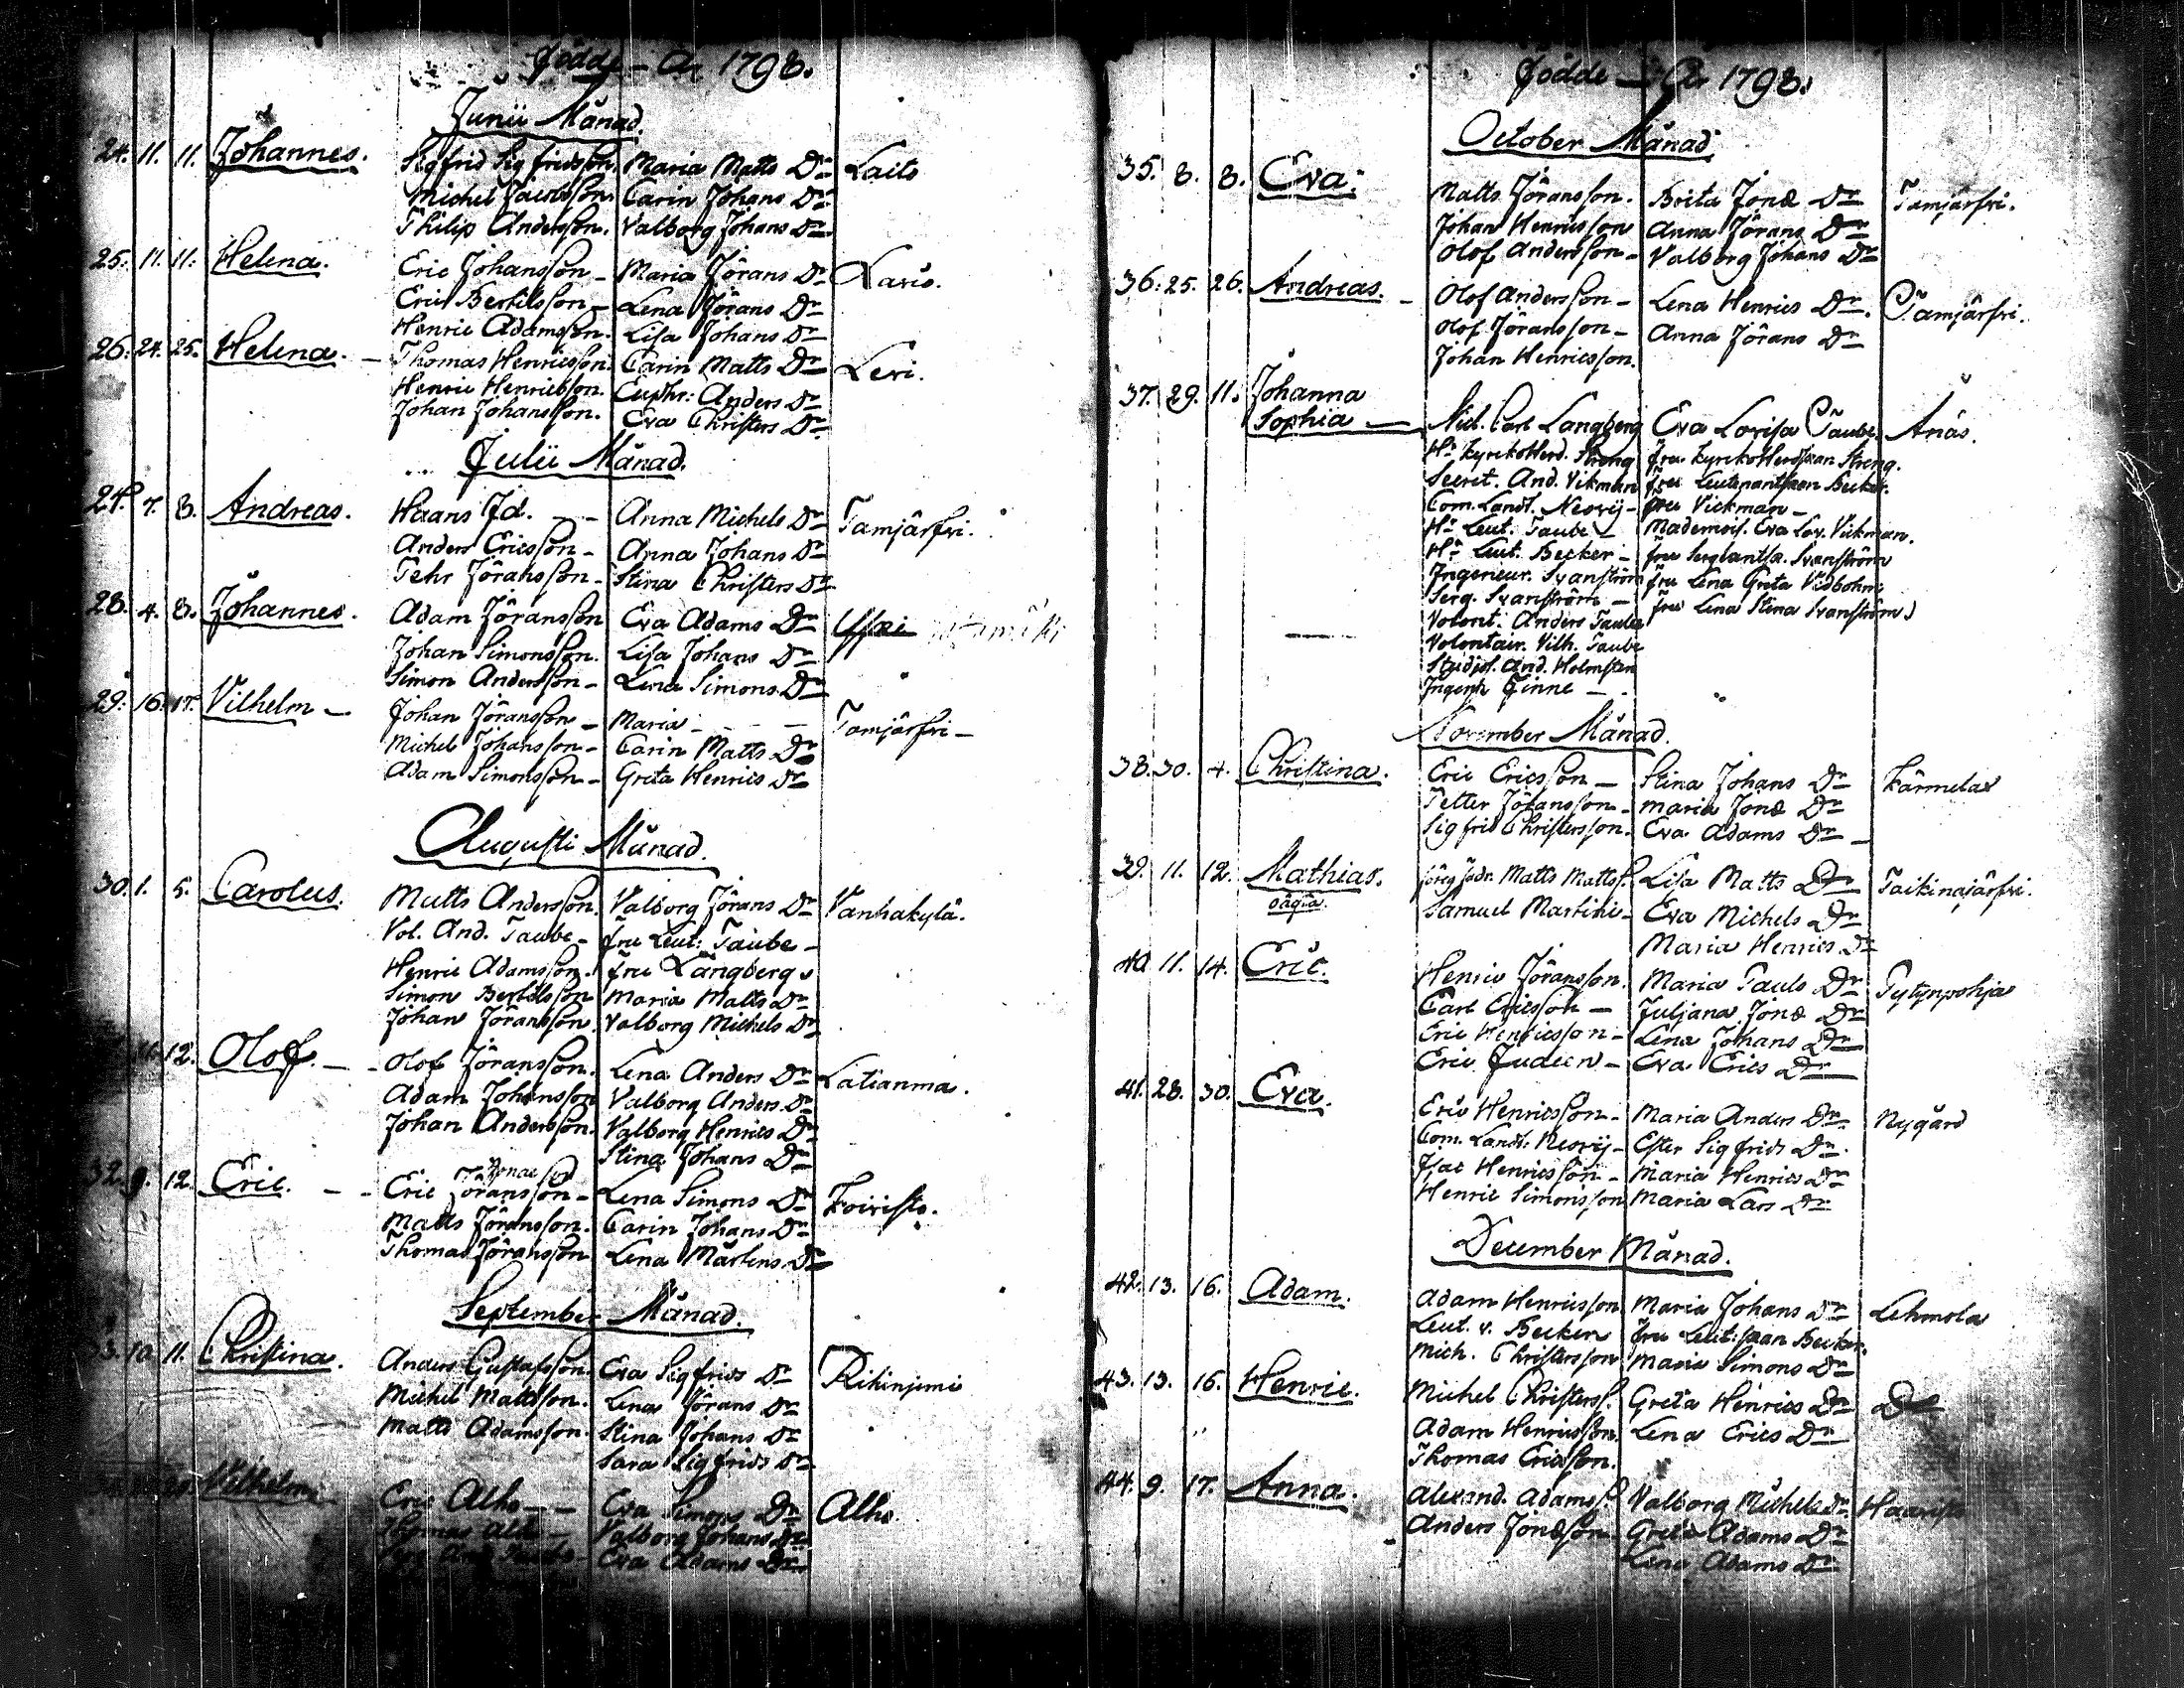 Födde - År 1798.
Junii Månad.
24. 11. 11. Johannes. Sigfrid Sigfridsson. Maria Matts Dr Laits
Michel Jacobsson. Carin Johans Dr
Philip Andersson. Valborg Johans Dr
25. 11. 11. Helena. Eric Johansson - Maria Jörans Dr Laris.
Eric Bertilsson - Lena Jörans Dr
Henric Adamsson. Lisa Johans Dr
26. 24. 25. Helena. - Thomas Henricsson. Carin Matts Dr Levi.
Henric Henricsson. Euphr: Anders Dr
Johan Johansson. Eva Christers Dr
Julii Månad.
7. 8. Andreas. Haans Jd. - - Anna Michels Dr Tamjärfvi.
Anders Ericsson - Anna Johans Dr
Pehr Jöransson - Stina Christers Dr
28. 4. 8. Johannes. Adam Jöransson Eva Adams Dr
Johan Simonsson. Lisa Johans Dr
Simon Andersson - Lena Simons Dr
29. 16. 17. Vilhelm - Johan Jöransson - Maria - - - Tamjärfvi -
Michel Johansson - Carin Matts Dr
Adam Simonsson - Greta Henrics Dr
Augusti Månad.
30. 1. 5. Carolus. Matts Andersson. Valborg Jörans Dr Vanhakylä.
Vol. And. Taube - fru Leut: Taube -
Henric Adamsson. fru Långberg
Simon Bertilsson Maria Matts Dr
Johan Jöransson. Valborg Michels Dr
12. Olof. - - Olof Jöransson. Lena Anders Dr Latianma.
Adam Johansson Valborg Anders Dr
Johan Andersson. Valborg Henrics Dr
Stina Johans Dr
Jonae
32. 9. 12. Eric. - - Eric Jöransson - Lena Simons Dr Koivisto.
Matts Jöransson. Carin Johans Dr
Thomas Jöransson Lena Mårtens Dr
September Månad.
33. 10. 11. Christina. Anders Gustafsson. Eva Sigfrids Dr Rikinjemi
Michel Mattsson. Lena Jörans Dr
Matts Adamsson. Stina Johans Dr
Sara Sigfrids Dr
Vilhelm Eric Alho - - Eva Simons Dr Alho.
Thomas Valborg Johans Dr
Eva Adams Dr
Födde - År 1798.
October Månad
35. 8. 8. Eva. Matts Jöransson. Brita Jonæ Dr Tamjärfvi.
Johan Henricsson Anna Jörans Dr
Olof Andersson - Valborg Johans Dr
36. 25. 26. Andreas. - Olof Andersson - Lena Henrics Dr. Tamjärfvi.
Olof Jöransson - Anna Jörans Dr
Johan Henricsson.
37. 29. 11. Johanna
Sophia - Nicl. Carl Langberg Eva Lovisa Taube. Anäs.
Hr KyrkoHerd. Streng fru KyrkoHerdskan Streng.
Secret. And. Vikman fru Leutenantskan Becker.
Com. Landt. Neovij - fru Vickman -
Hr Leut. Taube - Mademois. Eva Lov. Vickman.
Hr Leut. Becker - fru Sergiantsk. Svanström
Ingenieur. Svanström fru Lena Greta Vidbohm
Serg. Svanström - fru Lena Stina Svanström
Volont. Anders Taube
Volontair. Vilh. Taube
And. Holmsten
Finne -
November Månad.
38. 30. 4. Christina. Eric Ericsson - Stina Johans Dr Kärmelax
Petter Johansson - Maria Jonæ Dr
Sigfrid Christersson. Eva Adams Dr -
39. 11. 12. Mathias. Matts Mattss. Lisa Matts Dr Taikinajärfvi.
oägta. Samuel Martini - Eva Michels Dr
Maria Henrics Dr
40. 11. 14. Eric. Henric Jöransson. Maria Pauls Dr Pytynpohja
Carl Ericsson - Juliana Jonæ Dr
Eric Henricsson - Lena Johans Dr
Eric Judeen - Eva Erics Dr
41. 28. 30. Eva. Eric Henricsson - Maria Anders Dr Nygård
Com. Landt. Neovij - Ester Sigfrids Dr
Isac Henricsson - Maria Henrics Dr
Henric Simonsson Maria Lars Dr
December Månad.
42. 13. 16. Adam. Adam Henricsson Maria Johans Dr Lehmola
Leut. v. Becker fru Leut:skan Becker.
Mich. Christersson Maria Simons Dr
43. 13. 16. Henric. Michel Christerss. Greta Henrics Dr Do
Adam Henricsson. Lena Erics Dr
Thomas Ericsson.
44. 9. 17. Anna. Alexand. Adamss. Valborg Michels Dr
Anders Jonæson Greta Adams Dr
Lena Adams Dr